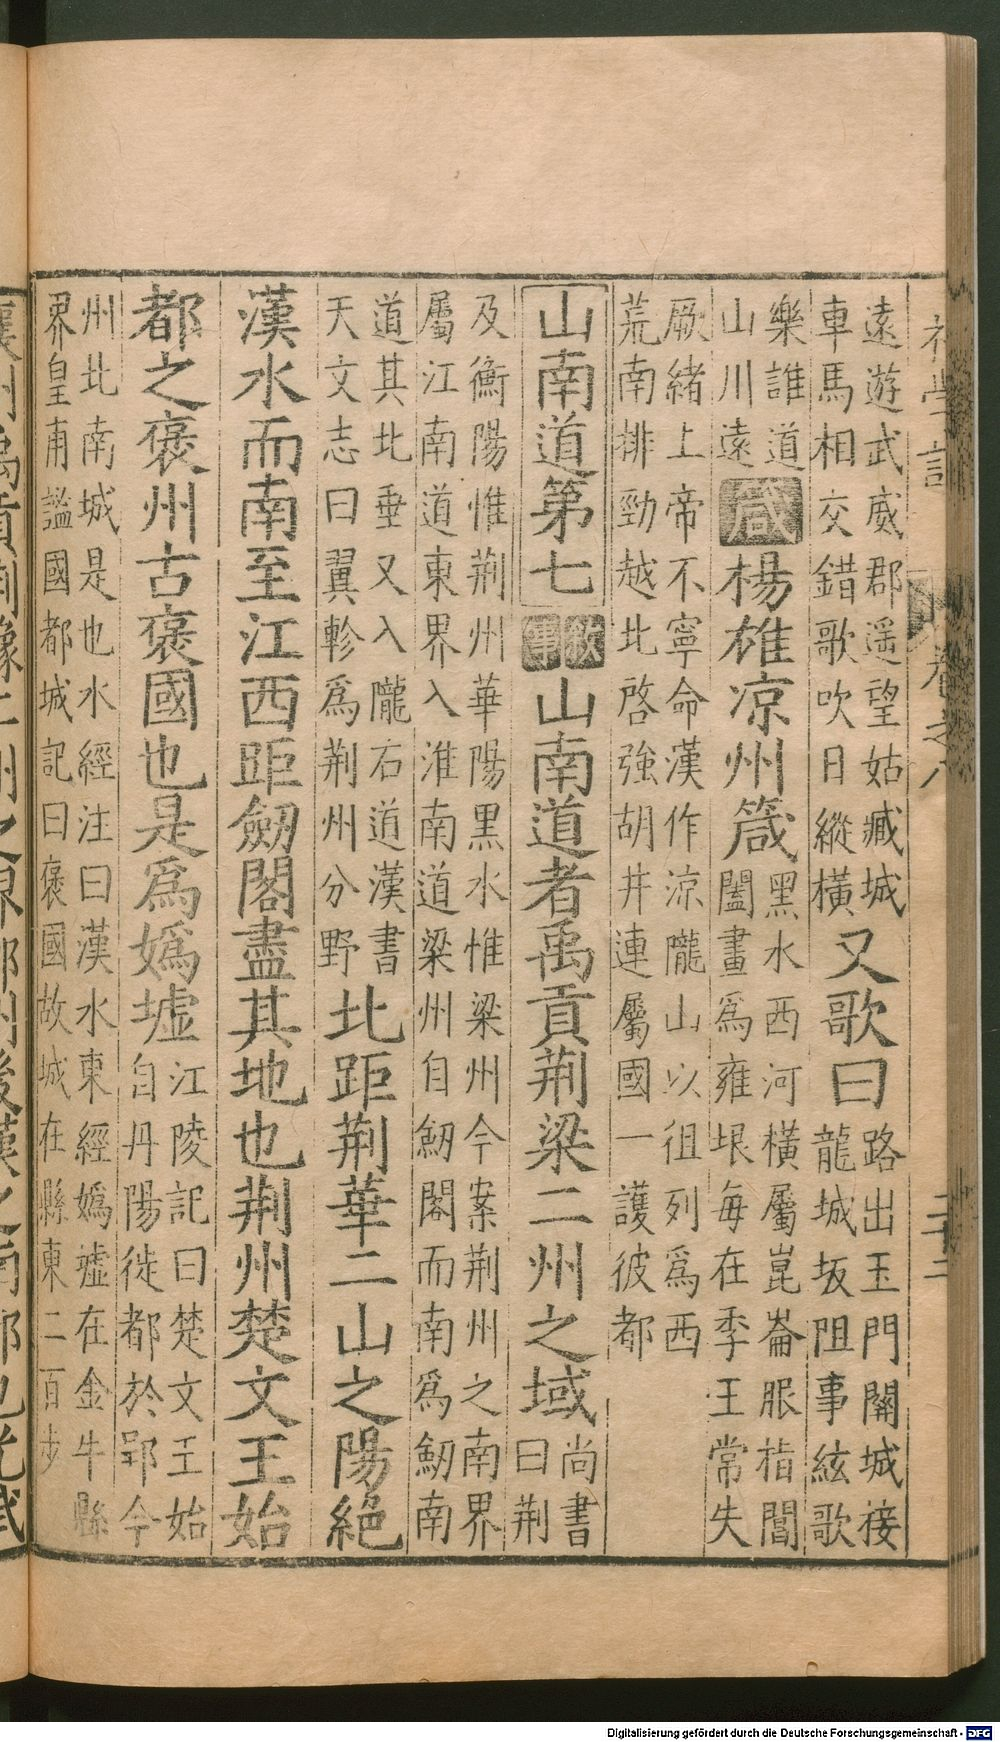 初學記 卷之八
遠遊武威郡遥望姑臧城
車馬相交錯歌吹日縱橫
又歌曰
路出玉門關城接
龍城坂阻事絃歌
樂誰道
山川遠
箴
楊雄凉州箴
黑水西河橫屬崑崙服指閶
闔畫爲雍垠每在季王常失
厥緒上帝不寧命漢作凉隴山以徂列爲西
荒南排勁越北啓強胡井連屬國一護彼都
山南道第七
敘事
山南道者禹貢荆梁二州之域
尚書
曰荆
及衡陽惟荆州華陽黑水惟梁州今案荆州之南界
屬江南道東界入淮南道梁州自劒閣而南爲劒南
道其北垂又入隴右道漢書
天文志曰翼軫爲荆州分野
北距荆華二山之陽絕
漢水而南至江西距劒閣盡其地也荆州楚文王始
都之褒州古褒國也是爲嬀墟
江陵記曰楚文王始
自丹陽徙都於郢今
州北南城是也水經注曰漢水東經嬀墟在金牛縣
界皇甫謐國都城記曰褒國故城在縣東二百步
Digitalisierung gefördert durch die Deutsche Forschungsgemeinschaft - DFG